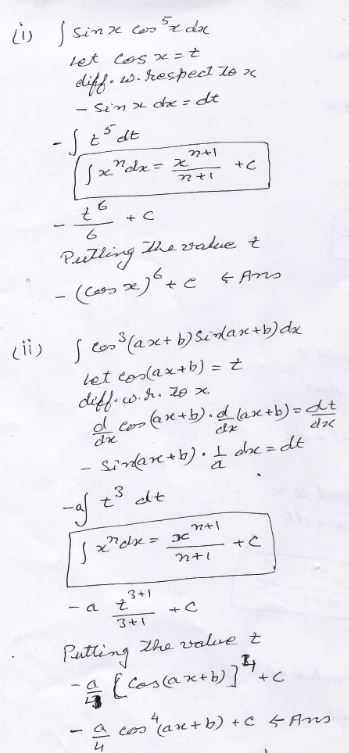 (i) ∫ sin x cos⁵x dx
Let cos x = t
diff. w. respect to x
- sin x dx = dt
- ∫ t⁵ dt
∫ xⁿdx = xⁿ⁺¹/n+1 + c
- t⁶/6 + c
Putting the value t
- (cos x)⁶ + c ← Ans
(ii) ∫ cos³(ax+b) sin(ax+b) dx
Let cos(ax+b) = t
diff. w. r. to x.
d/dx cos (ax+b) . d/dx (ax+b) = dt/dx
- sin(ax+b) . 1/a dx = dt
-a∫ t³ dt
∫ xⁿdx = xⁿ⁺¹/n+1 + c
- a t³⁺¹/3+1 + c
Putting the value t
- a/4 [cos(ax+b)]⁴ + c
- a/4 cos⁴(ax+b) + c ← Ans